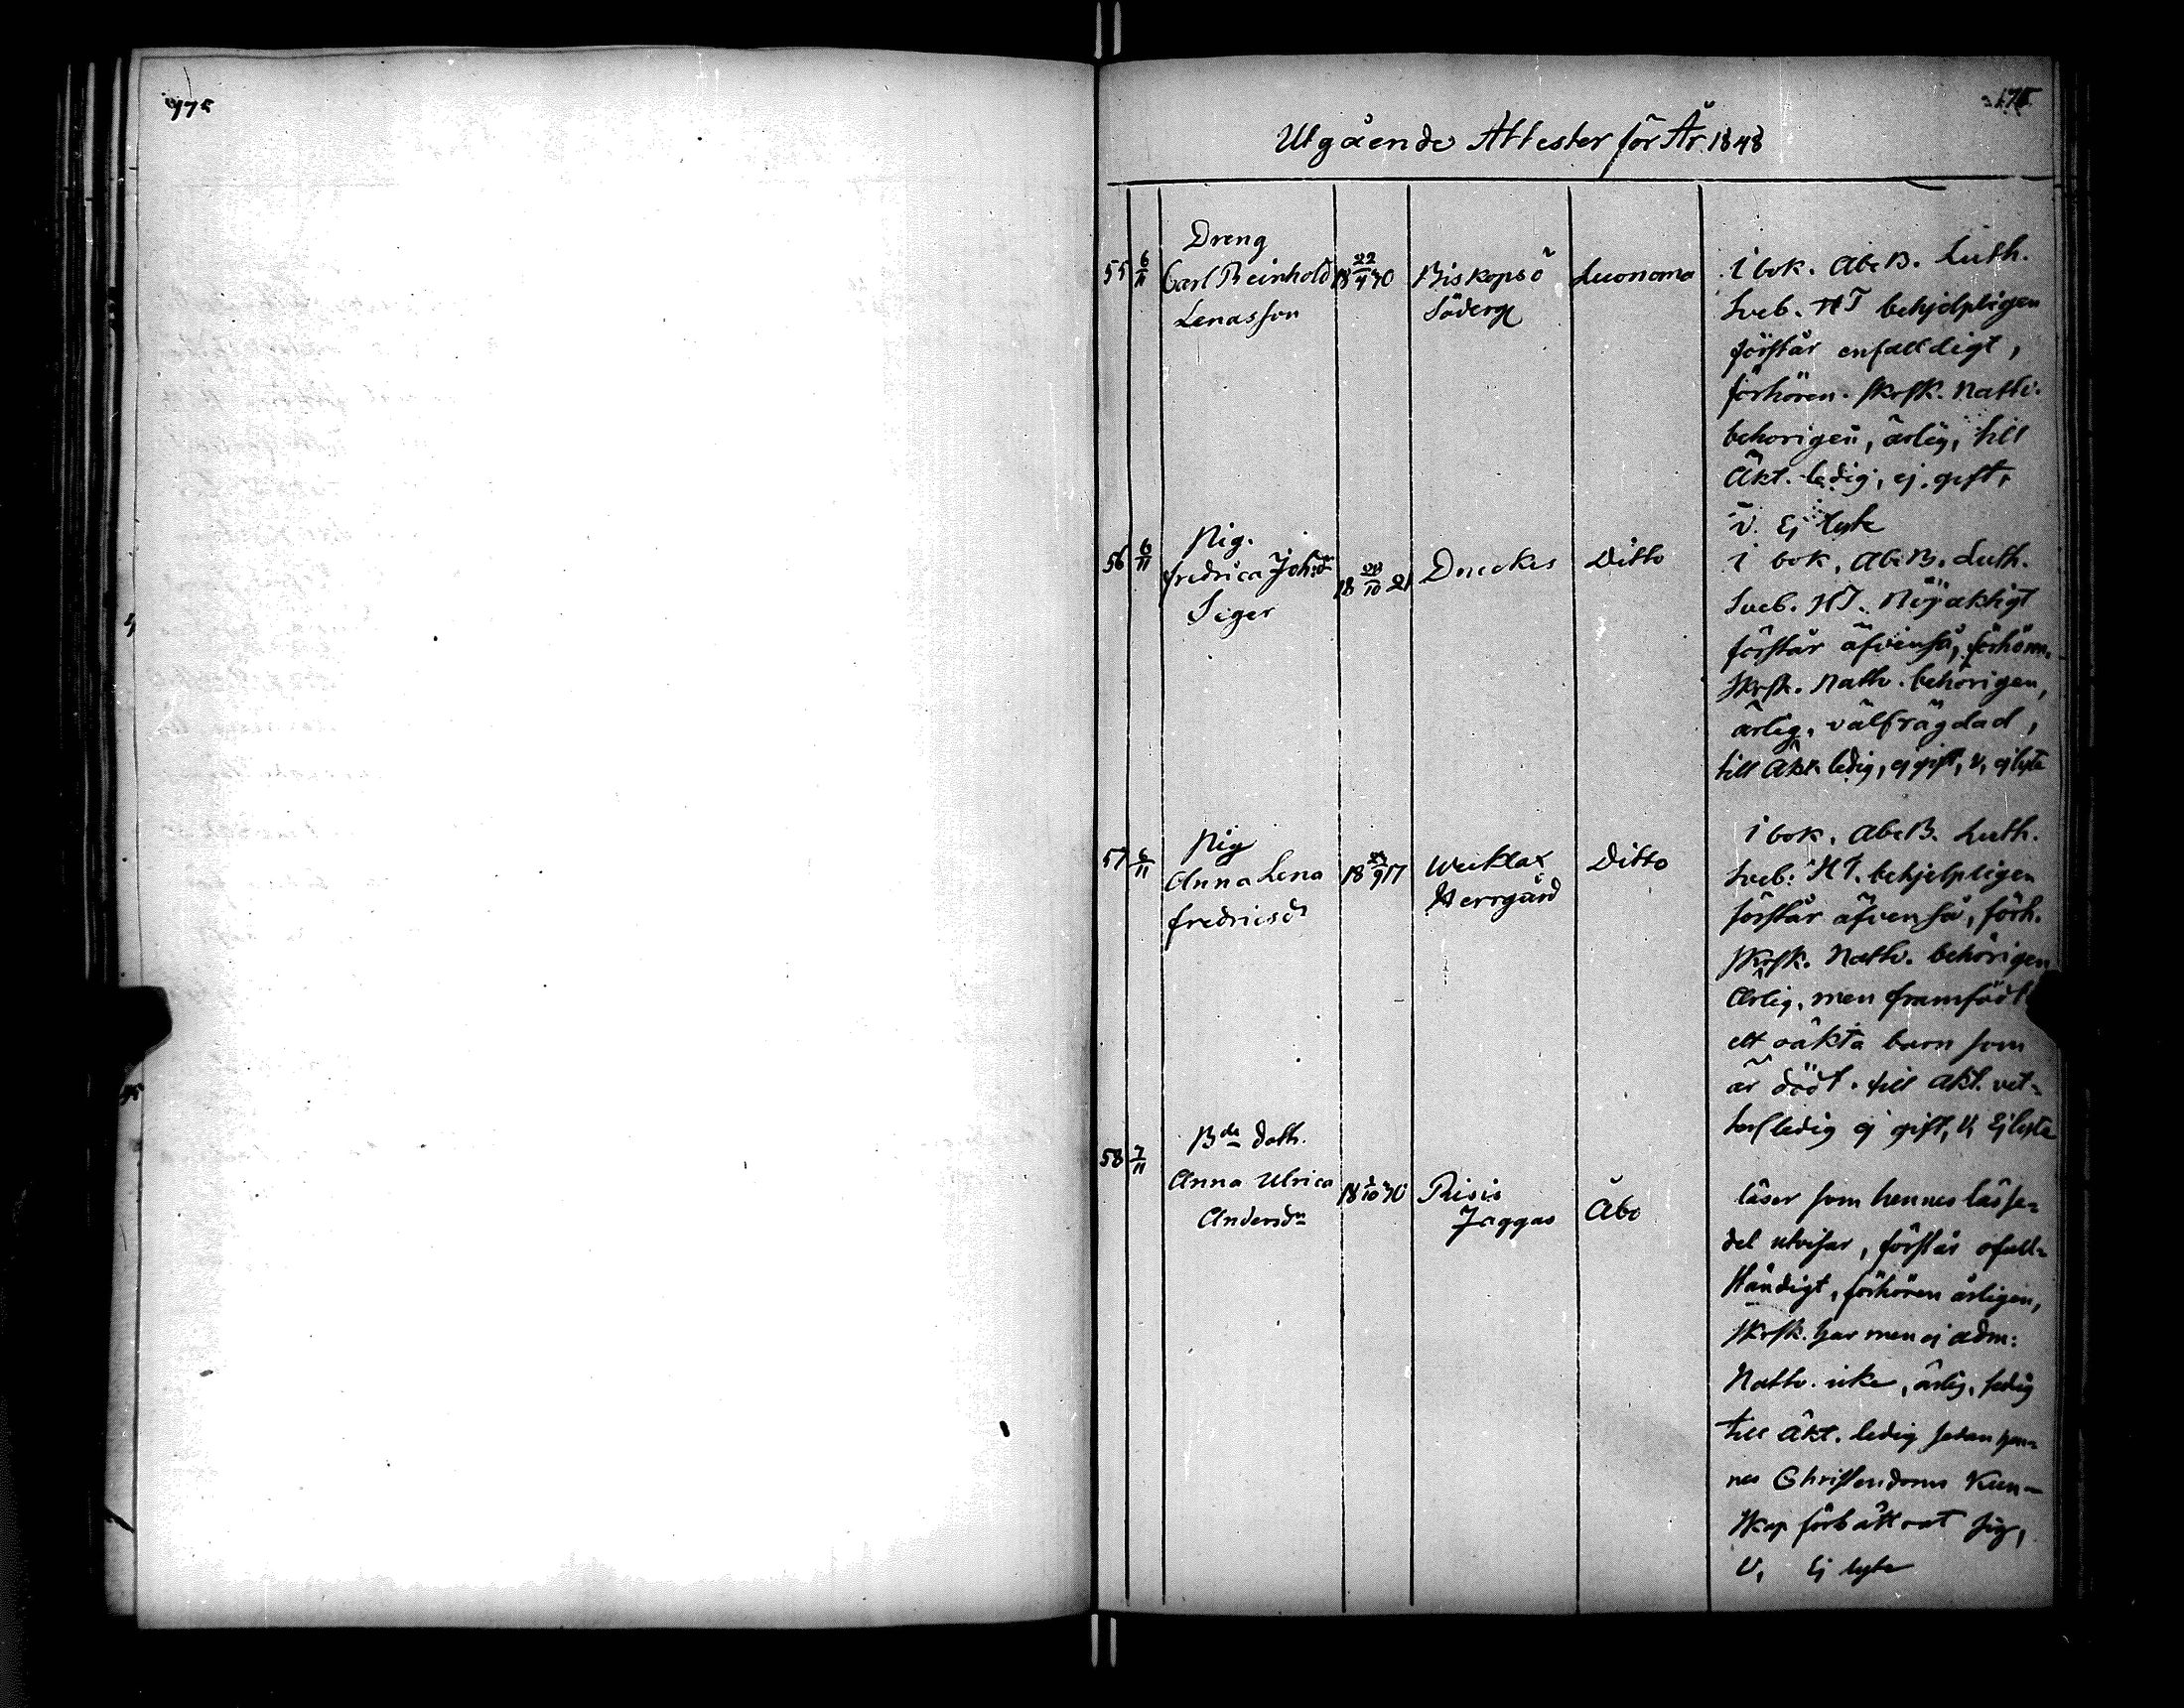 175
Utgående Attester för År 1848
55 6/11 Dreng
Carl Reinhold
Lenasson
18 22/4 30
Biskopsö
Söderg
Luonoma
i bok. Abc B. Luth.
Sveb. HT behjelpligen
förstår enfaldigt,
förhören. skrsk. Nattv.
behörigen, ärlig, till
Äkt. ledig, ej gift,
V. Ej lyte
56 6/11 Pig.
Fredrica Johsdr
Seger
18 /10 21
Ditto
i bok, Abc B. Luth.
Sveb. HT. Nöjaktigt
förstår äfvenså, förhören.
Skrsk. Nattv. behörigen,
ärlig, välfrägdad,
till Äkt. ledig, ej gift, V, ej lyte
57 6/11 Pig
Anna Lena
Fredricsdr
18 /9 17
Herrgård
Ditto
i bok, Abc B. Luth.
Sveb. HT. behjelpligen
förstår äfvenså, förh.
Skrsk. Nattv. behörigen
Ärlig, men framfödt
ett oäkta barn som
är dödt. till äkt. vet-
ledig ej gift, V, Ej lyte
58 7/11 Bde doth.
Anna Ulrica
Andersdr
18 /10 30
Jaggas
Åbo
läser som hennes låsse-
del utvisar, förstår ofull-
ständigt, förhören årligen,
Skrsk. har men ej adm:
Nattv. icke, ärlig, sedig
till Äkt. ledig sedan hen-
nes Christendoms Kun-
skap förbättrat sig,
V, Ej lyte